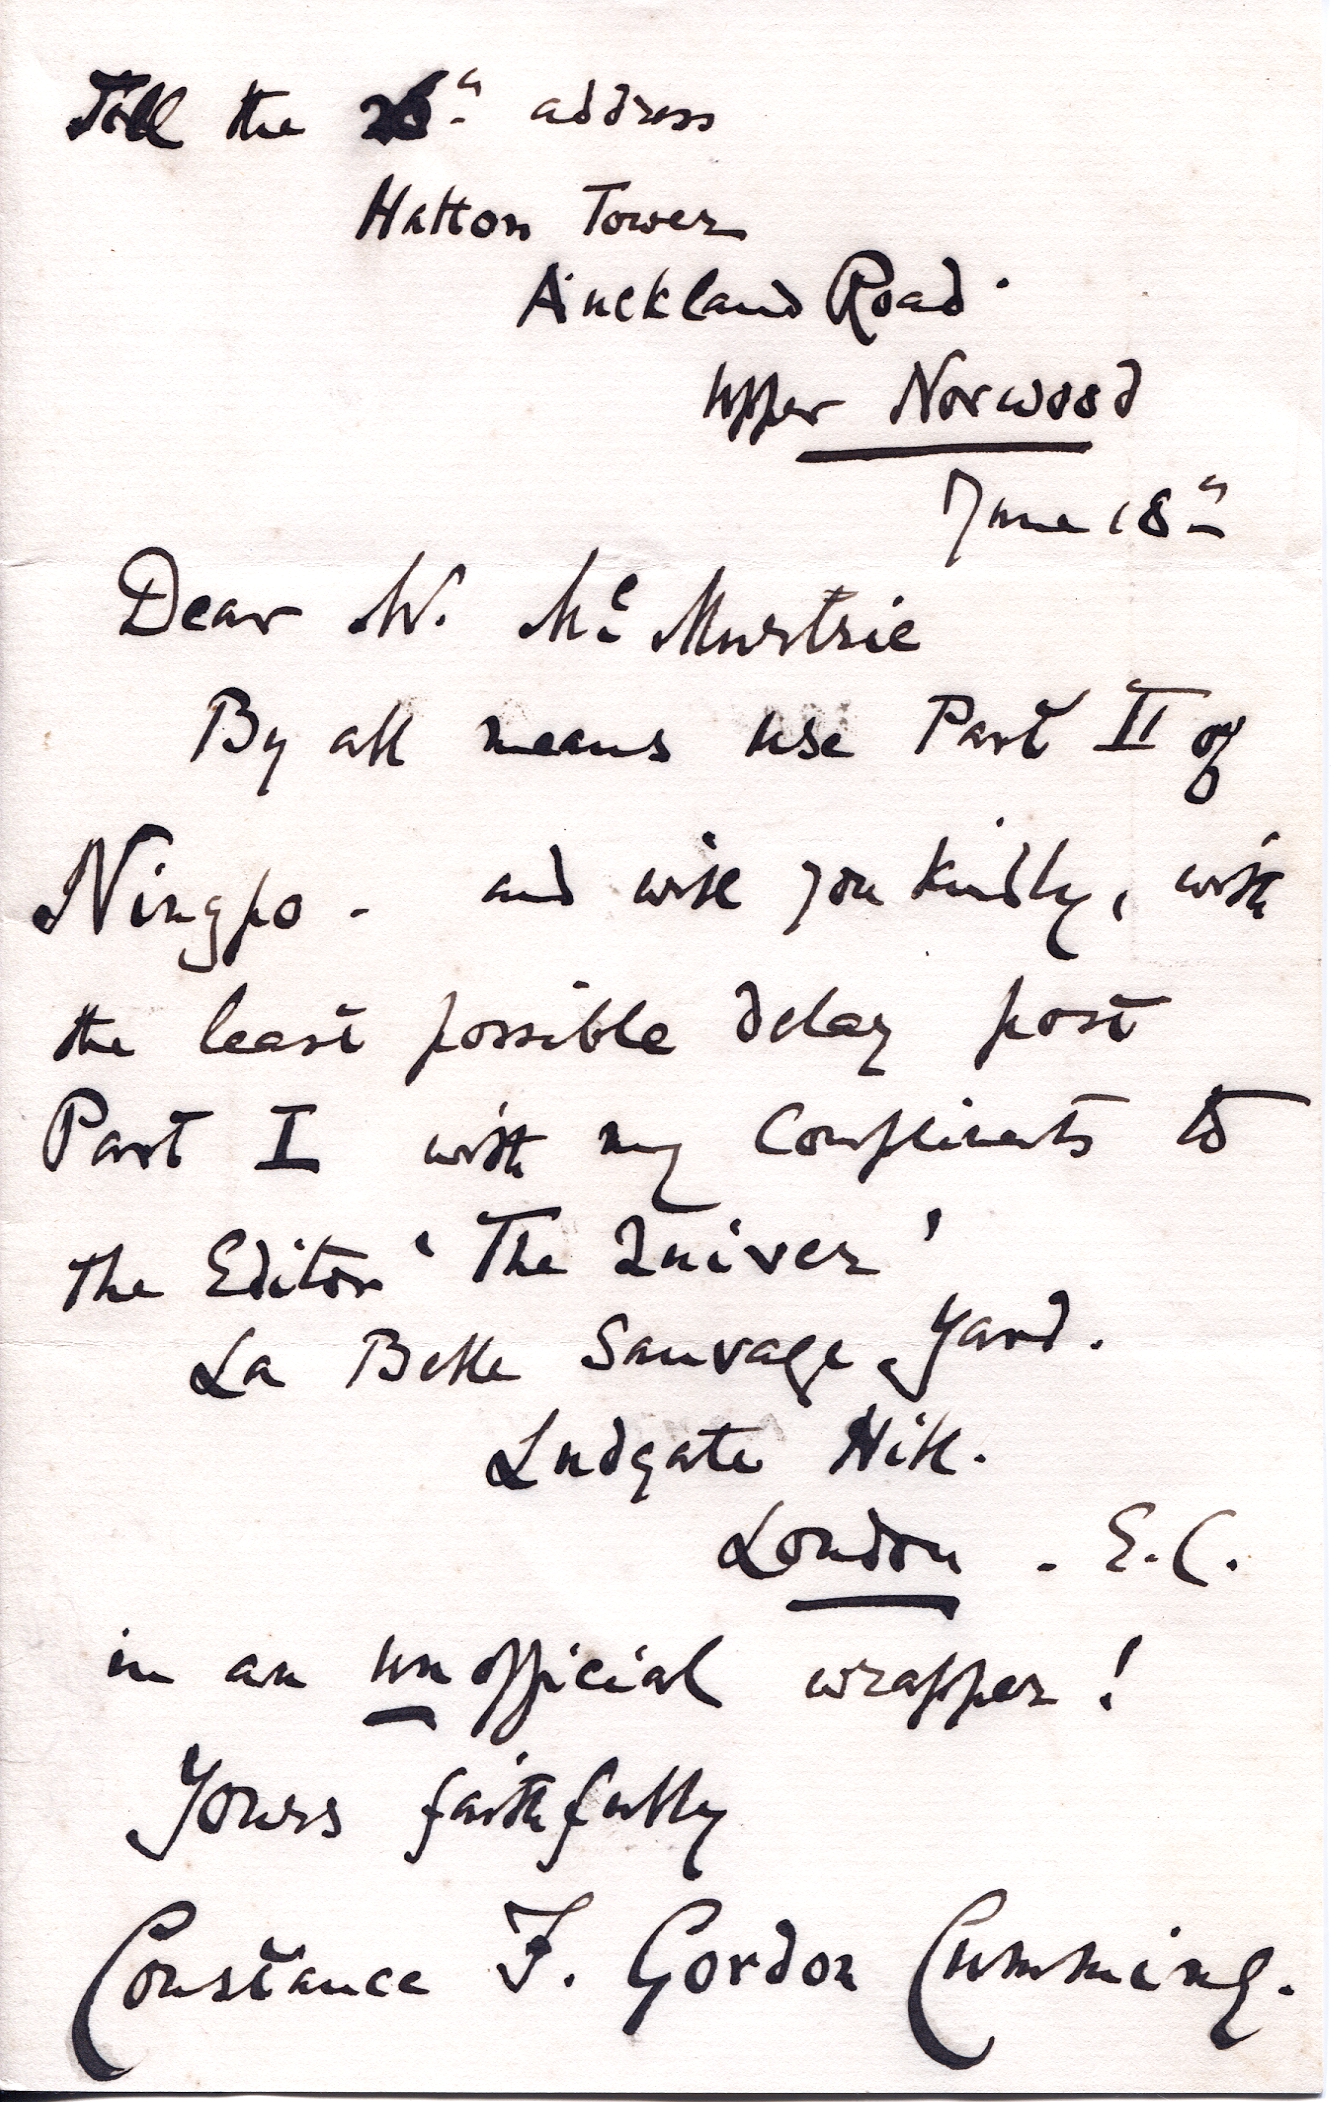 Till the 26th address
Hatton Tower
Auckland Road.
Upper Norwood
June 18th
Dear W. Mc Murtrie
By all means use Part II of
Ningpo - and will you kindly, with
the least possible delay post
Part I with my Compliments to
the Editor 'The Quiver'
La Belle Sauvage Yard.
Ludgate Hill.
London - E.C.
in an unofficial wrapper!
Yours faithfully
Constance F. Gordon Cumming.